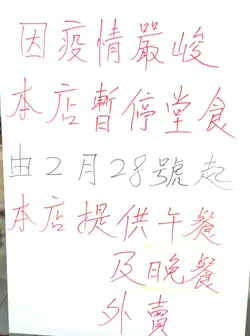 因疫情嚴峻
本店暫停堂食
由2月28號起
本店提供午餐
及晚餐
外賣